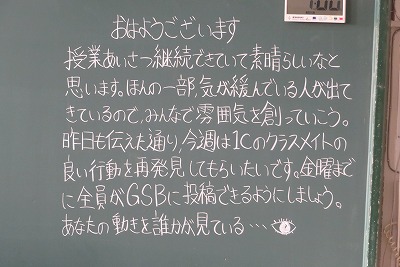 1:00
おはようございます
授業あいさつ継続できていて素晴らしいなと
思います。ほんの一部、気が緩んでいる人が出て
きているので、みんなで雰囲気を創っていこう。
昨日も伝えた通り、今週は1Cのクラスメイトの
良い行動を再発見してもらいたいです。金曜まで
に全員がGSBに投稿できるようにしましょう。
あなたの動きを誰かが見ている…